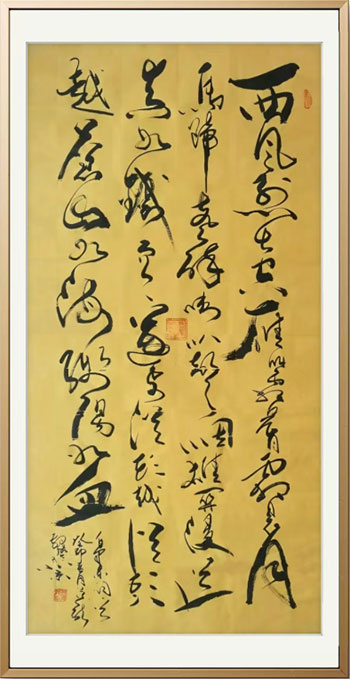 西风烈长空雁叫霜晨月
马蹄声碎喇叭声咽雄关漫道
真如铁而今迈步从头越从头
越苍山如海残阳如血